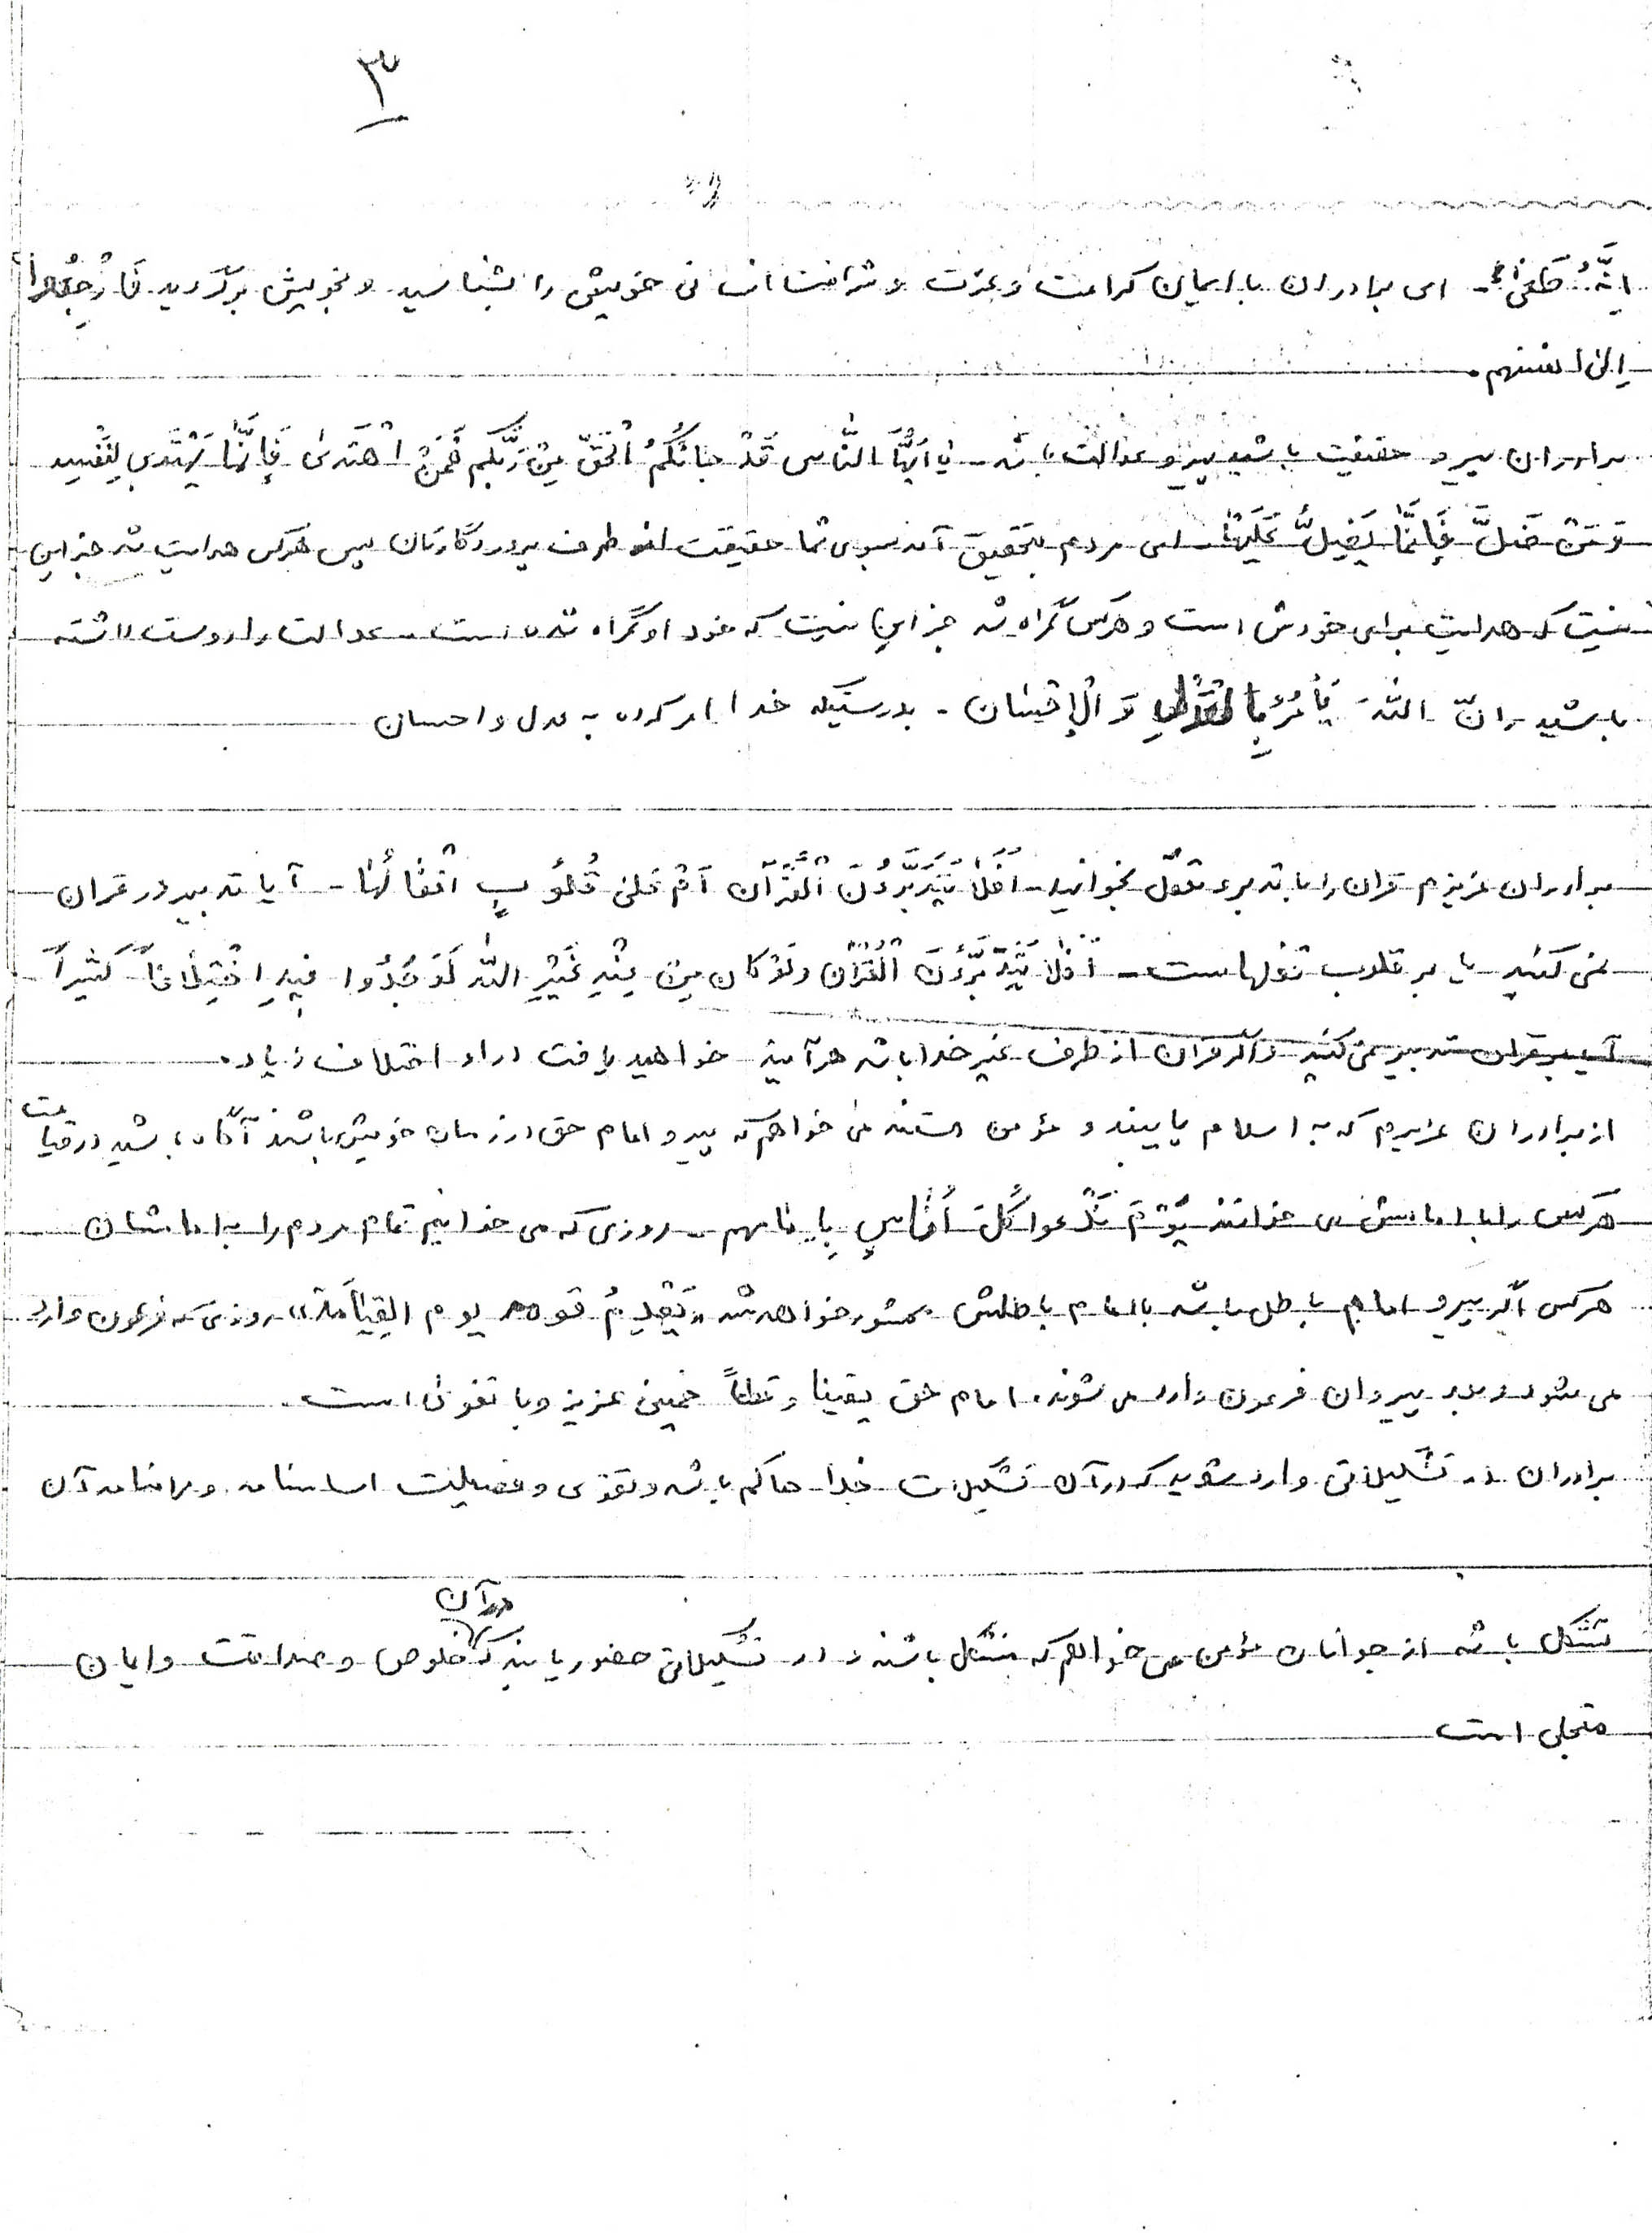 ۳
اِنَّهُ طَغیٰ - ای برادران با ایمان کرامت و عزت و شرافت انسانی خویش را بشناسید و بخویش برگردید فَارْجِعُوا
اِلیٰ انفسهم.
برادران پیرو حقیقت باشید پیرو عدالت باشد - یٰا اَیُّهَا النّٰاس قَدْ جٰائَکُمُ الْحَقّ مِنْ رَبِّکُم فَمَنْ اهْتَدیٰ فَاِنَّمٰا یَهْتَدی لِنَفْسِهِ
وَ مَنْ ضَلَّ فَاِنَّمٰا یَضِلُّ عَلَیْهٰا - ای مردم بتحقیق آمد بسوی شما حقیقت از طرف پروردگارتان پس هرکس هدایت شد جز این
نیست که هدایت برای خودش است و هرکس گمراه شد جز این نیست که خود او گمراه شده است - عدالت را دوست داشته
باشید - انّ اللّٰهَ یَأمُرُ بِالْعَدْلِ وَ الْاِحْسٰان - بدرستیکه خدا امر کرده به عدل و احسان
برادران عزیزم قران را با تدبر و تعقل بخوانید - اَفَلاٰ یَتَدَبَّرُونَ الْقُرْآن اَمْ عَلیٰ قُلُوبٍ اقْفٰالُهٰا - آیا تدبیر در قران
نمی کنید یا بر قلوب قفلهاست - اَفَلاٰ یَتَدَبَّرُونَ الْقُرْآن وَلَوْ کان مِنْ عِنْدِ غَیْرِ اللّٰه لَوَجَدُوا فیهِ اخْتِلٰافاً کَثیراً
آیا بر قران تدبیر نمی کنید و اگر قران از طرف غیر خدا باشد هرآینه خواهید یافت در او اختلاف زیاد.
از برادران عزیزم که به اسلام پایبند و مؤمن هستند می خواهم که پیرو امام حق در زمان خویش باشند آگاه باشید در قیامت
هرکس را با امامش می خوانند یَوْمَ نَدْعوا کُلَ اُنٰاسٍ بِاِمٰامهم - روزی که می خوانیم تمام مردم را به امامشان
هرکس اگر پیرو امام باطل باشد با امام باطلش محشور خواهد شد «یَقْدِمُ قومه یوم القِیٰامَة» روزی که فرعون وارد
می شود و پیروان فرعون وارد می شوند. امام حق یقینا و قطعاً خمینی عزیز و با تقویٰ است.
برادران در تشکیلاتی وارد شوید که در آن تشکیلات خدا حاکم باشد و تقوی و فضیلت اساسنامه و مرامنامه آن
تشکل باشد از جوانان مؤمن می خواهم که متشکل باشند و در تشکیلاتی حضور یابند که در آن خلوص و صداقت و ایمان
متجلی است